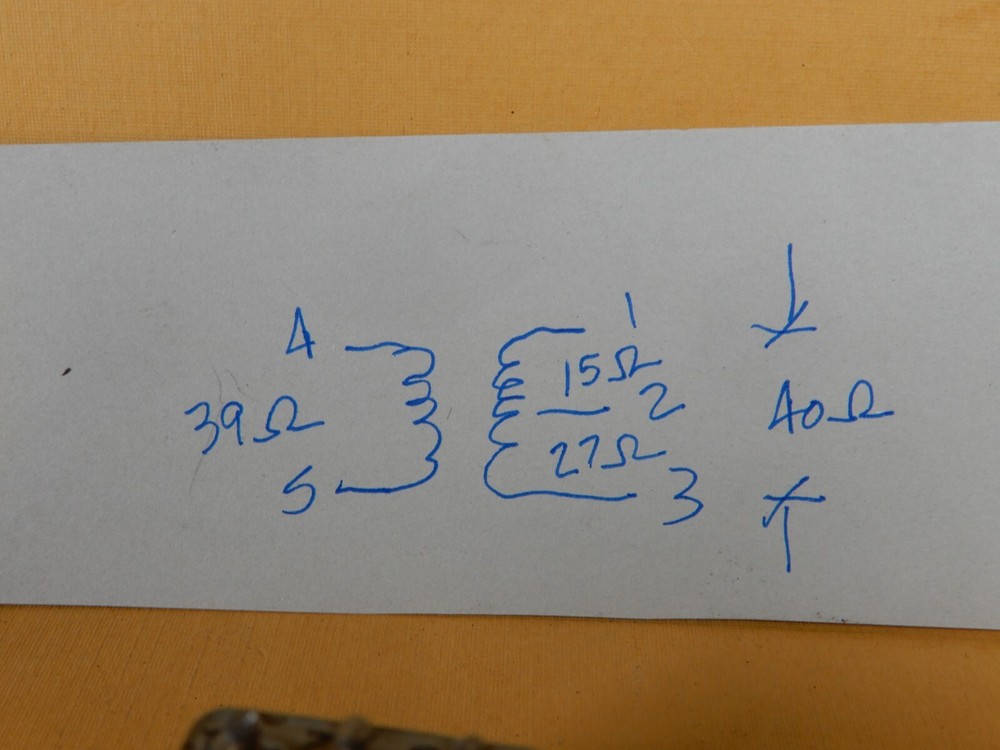 4 1
15Ω
39Ω 2 40Ω
27Ω
5 3